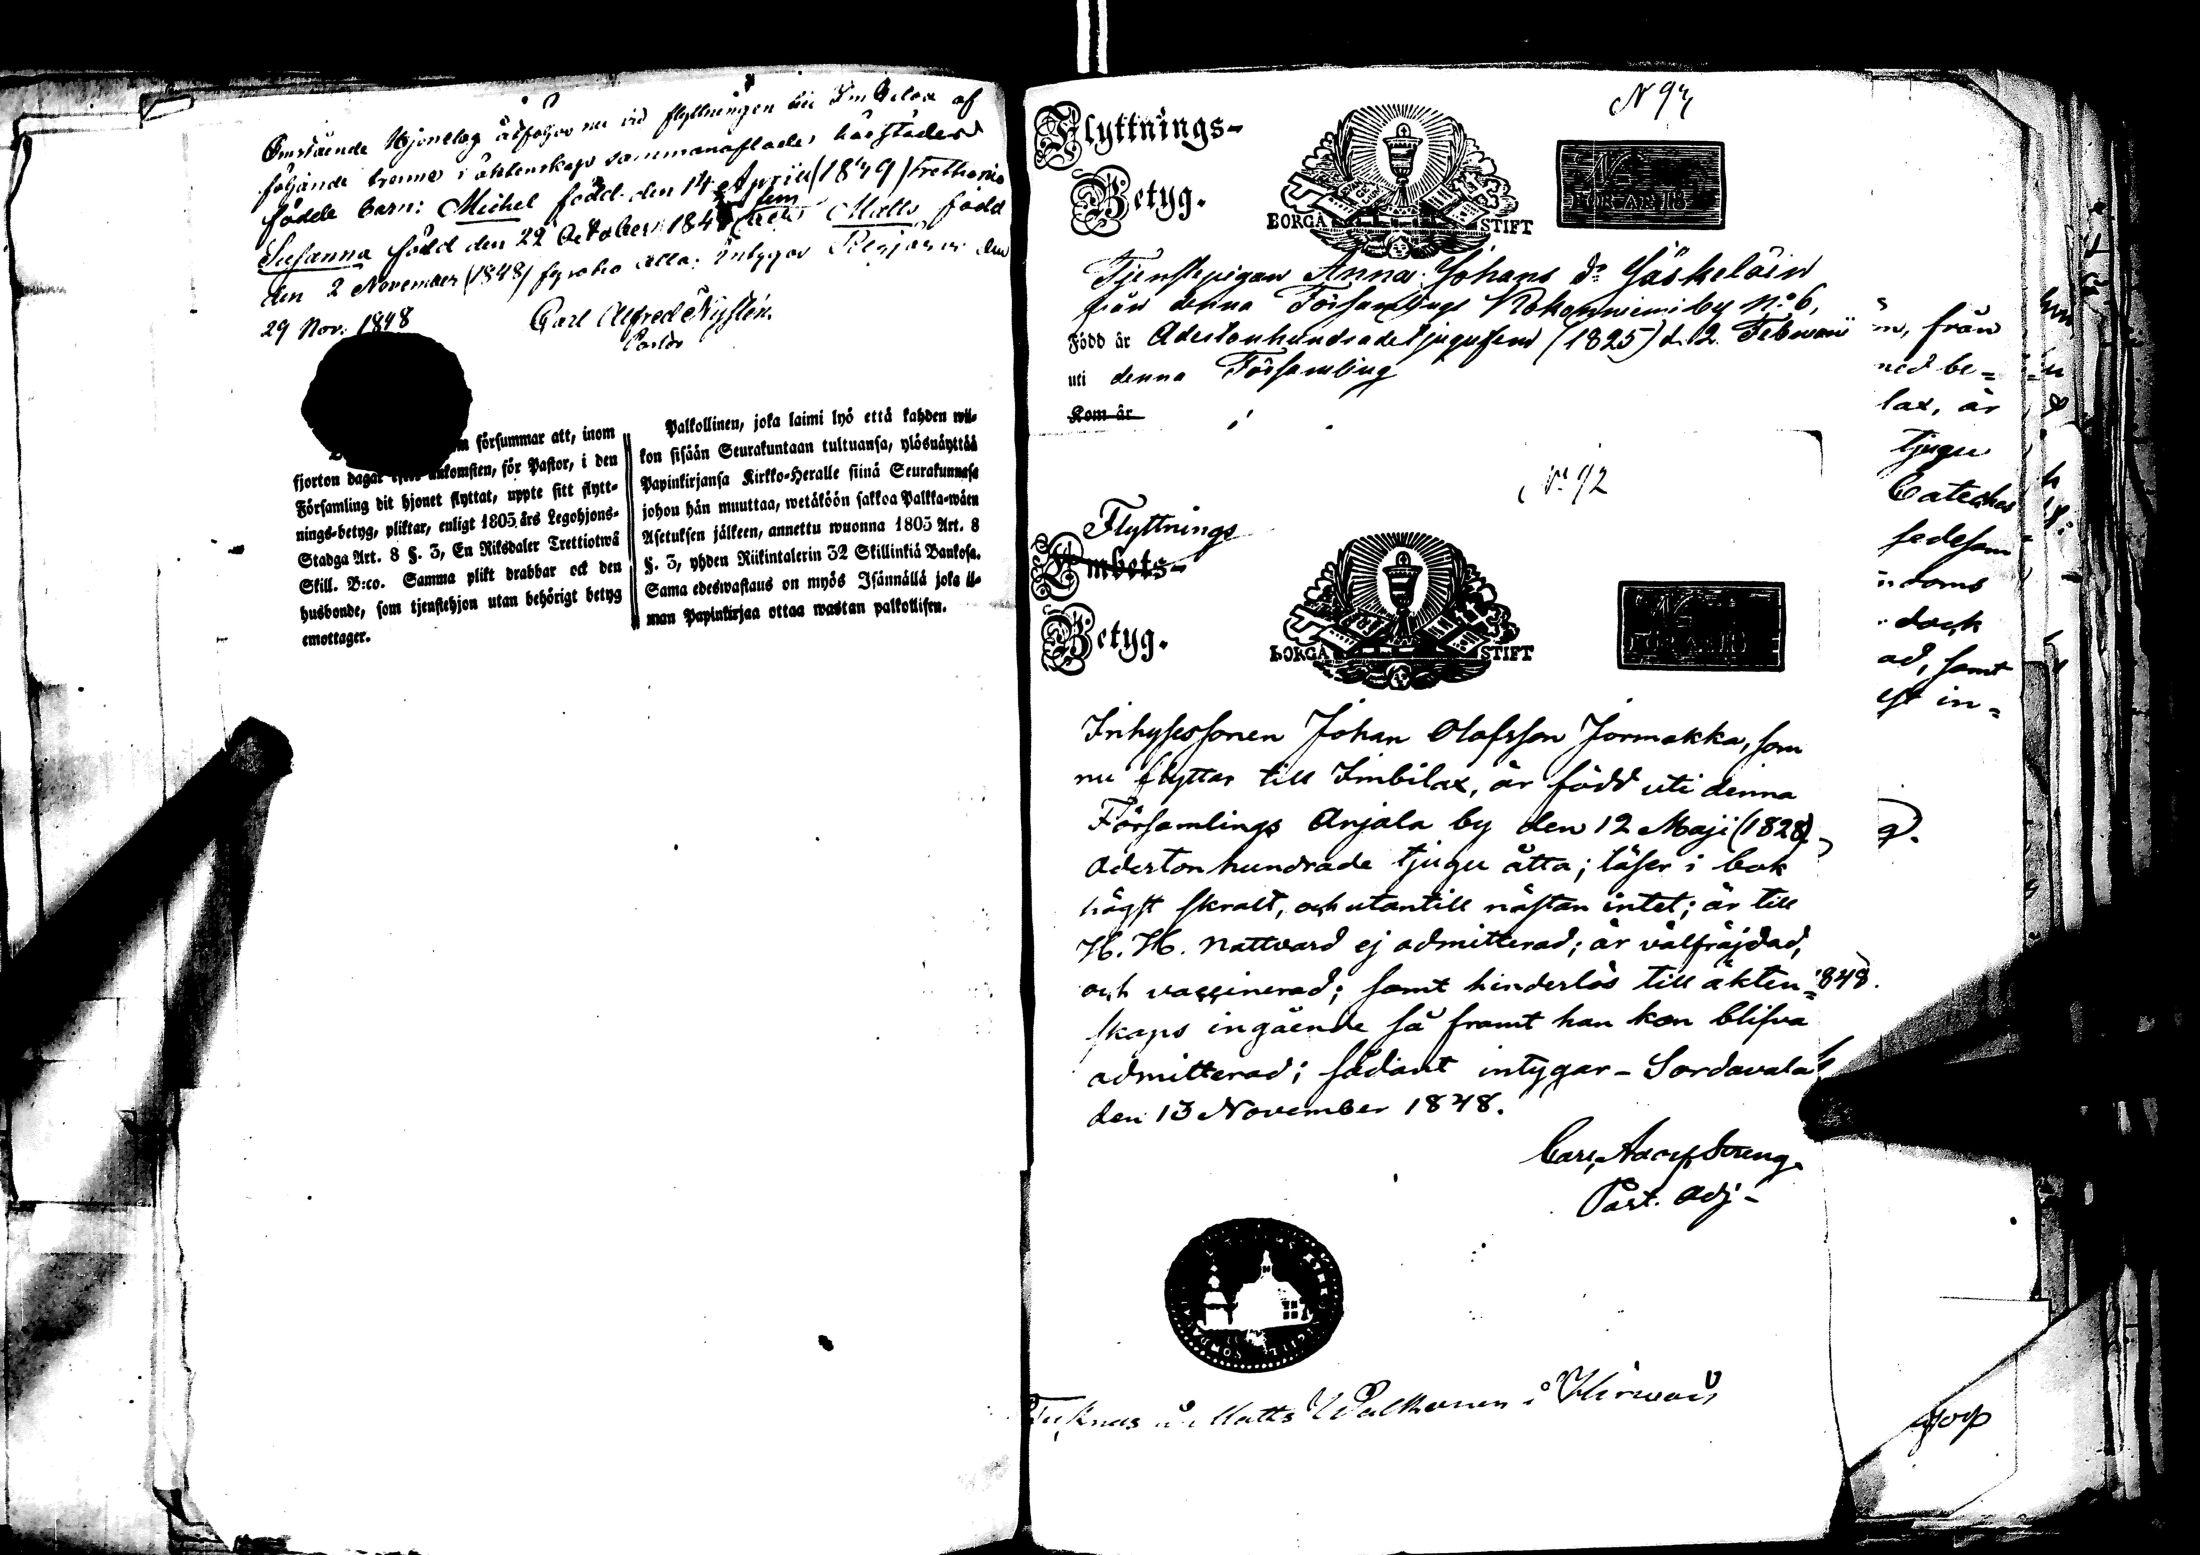 Omstående Hjonelag åtföljes nu vid flyttningen till Imbelax af
följande trenne i äktenskap sammanaflade, härstädes
födde barn: Michel född den 14 April (1839) trettionio
Susanna född den 22 October 1845 fem Matts född
den 2 November (1848) fyratio åtta; intygar den
29 Nov. 1848 Carl Alfred Nystén.
Pastor
försummar att, inom
fjorton dagar efter ankomsten, för Pastor, i den
Församling dit hjonet flyttat, uppte sitt flytt-
nings-betyg, pliktar, enligt 1805 års Legohjons-
Stadga Art. 8 §. 3, En Riksdaler Trettiotwå
Skill. B:co. Samma plikt drabbar ock den
husbonde, som tjenstehjon utan behörigt betyg
emottager.
Palkollinen, joka laimi lyö että kahden wii-
kon sisään Seurakuntaan tultuansa, ylösnäyttää
Papinkirjansa Kirkko-Herralle siinä Seurakunnasa
johon hän muuttaa, wetäköön sakkoa Palkka-wäen
Asetuksen jälkeen, annettu wuonna 1805 Art. 8
§. 3, yhden Riikintalerin 32 Skillinkiä Bankosa.
Sama edeswastaus on myös Isännällä joka il-
man Papinkirjaa ottaa wastan palkollisen.
N 97
Flyttnings-
Betyg.
BORGÅ STIFT
FÖR ÅR 18
Tjenstepigan Anna Johans dr Jäskeläin
från denna Församlings Kokonniemi by No 6,
Född år Adertonhundradetjugufem (1825) d. 2 Februari
uti denna Församling
Kom år
No 92
Flyttnings
Embets-
Betyg.
BORGÅ STIFT
FÖR ÅR 18
Inhysessonen Johan Olofsson Jormakka, som
nu flyttar till Imbilax, är född uti denna
Församlings Anjala by den 12 Maji (1828)
Adertonhundrade tjugu åtta; läser i bok
högst skralt, och utantill nästan intet; är till
H. H. Nattvard ej admitterad; är välfräjdad,
och vaccinerad; samt hinderlös till äkten=
skaps ingående så framt han kan blifva
admitterad; sådant intygar – Sordavala
den 13 November 1848.
Carl Adolf Streng.
Past. Adj –
Matts i
n, från
ned be=
lax, är
tjugu
Cateches
dock
ad, samt
in=
848.